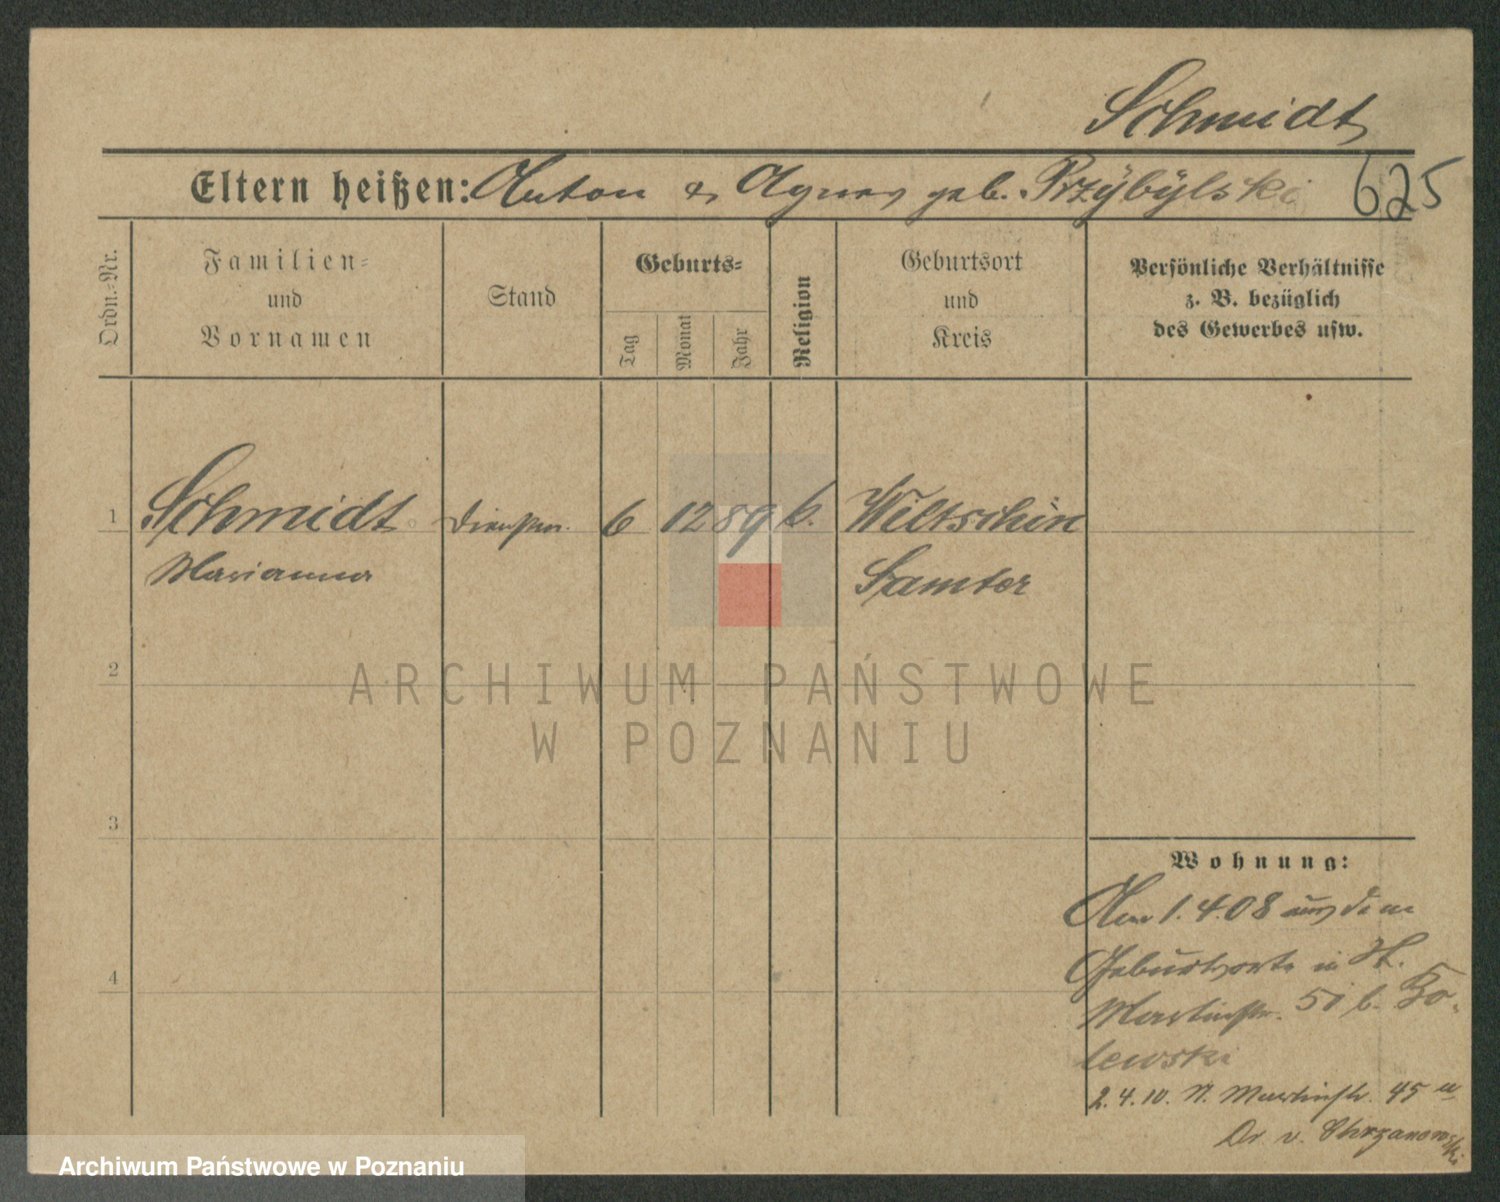 Schmidt
Eltern heißen: Anton & Agnes geb. Przybylski 625
Ordn.-Nr.
Familien-
und
Vornamen
Stand
Geburts-
Tag
Monat
Jahr
Religion
Geburtsort
und
Kreis
Persönliche Verhältnisse
z. B. bezüglich
des Gewerbes usw.
1 Schmidt Dienstm. 6 12 89 k. Wiltschin
Marianna Samter
2
ARCHIWUM PAŃSTWOWE
W POZNANIU
3
Wohnung:
Am 1.4.08 aus dem
Geburtsorte in St.
4
Martinstr. 51 b. Ko-
lewski
2.4.10. St. Martinstr. 45 a
Dr. v. Chrzanowski
Archiwum Państwowe w Poznaniu